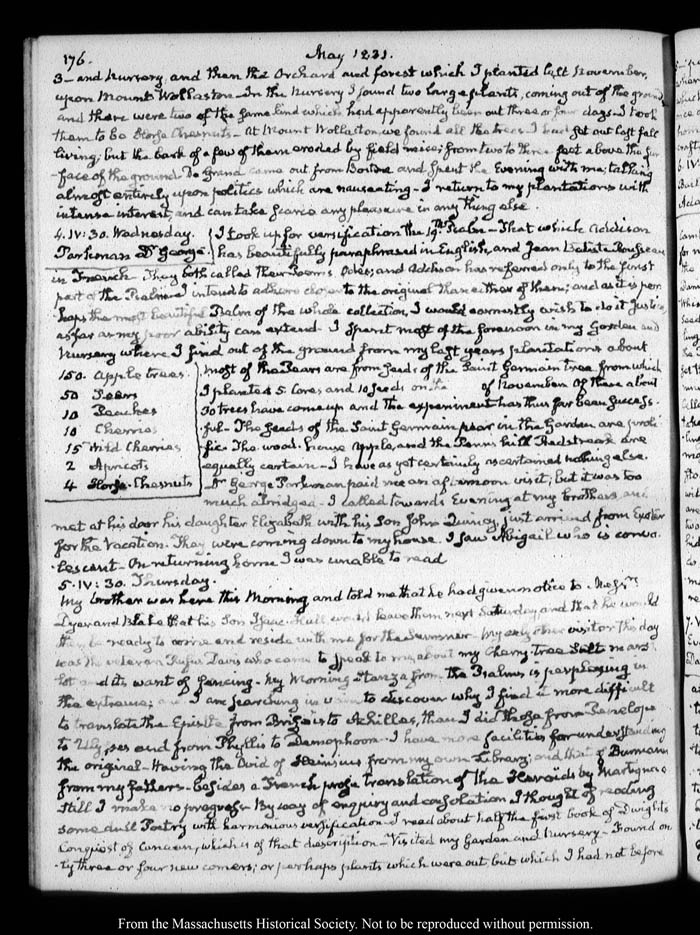 176.
May 1831.
3— and Nursery, and then the Orchard and forest which I planted last November,
upon Mount Wollaston. In the Nursery I found two large plants, coming out of the ground
and there were two of the same kind which had apparently been out three or four days. I took
them to be Horse Chesnuts— At Mount Wollaston we found all the trees I had set out last fall
living; but the bark of a few of them eroded by field mice; from two to three feet above the sur-
face of the ground. De Grand came out from Boston and spent the Evening with me; talking
almost entirely upon politics which are nauseating— I return to my plantations with
intense interest, and can take scarce any pleasure in any thing else.
4. IV: 30. Wednesday.
Parkman Dr George.
I took up for versification the 19th Psalm— That which Addison
has beautifully paraphrased in English, and Jean Batiste Rousseau
in French. They both called their Poems Odes; and Addison has referred only to the first
part of the Psalm. I intend to adhere closer to the original than either of them; and as it is per-
haps the most beautiful Psalm of the whole collection, I would earnestly wish to do it justice,
as far as my poor ability can extend. I spent most of the forenoon in my Garden and
Nursery where I find out of the ground from my last years plantations about
150. Apple trees.
50 Pears
10 Peaches
10 Cherries
15 Wild Cherries
2 Apricots
4 Horse-Chesnuts
most of the Pears are from seeds of the Saint Germain tree from which
I planted 5 Cores and 10 seeds on the of November of these about
30 trees have come up and the experiment has thus far been success-
ful— The seeds of the Saint Germain pear in the Garden are prolic
fic. The wood-house Apple, and the Penn's hill Redstreak are
equally certain— I have as yet certainly ascertained nothing else.
Dr George Parkman paid me an afternoon visit; but it was too
much abridged. I called towards Evening at my brothers and
met at his door his daughter Elizabeth with his Son John Quincy, just arrived from Exeter
for the Vacation. They were coming down to my house. I saw Abigail who is conva-
lescent— On returning home I was unable to read
5. IV: 30. Thursday.
My brother was here this Morning and told me that he had given notice to Messrs
Dyer and Blake that his Son Isaac Hull would leave them next Saturday, and that he would
then be ready to come and reside with me for the Summer— My only other visitor this day
was the veteran Rufus Davis who came to speak to me about my Cherry-Tree Salt marsh
lot and its want of fencing— My Morning Stanza from the Psalms is perplexing in
the extreme; and I am searching in vain to discover why I find it more difficult
to translate the Epistle from Briseis to Achilles, than I did those from Penelope
to Ulysses and from Phyllis to Demophoon. I have more facilities for understanding
the original— Having the Ovid of Heinsius from my own Library, and that of Burmann
from my fathers— besides a French prose translation of the Heroids by Martignac
still I make no progress— By way of enquiry and consolation I thought of reading
some dull Poetry with harmonious versification— I read about half the first book of Dwight's
Conquest of Canaan, which is of that description— Visited my Garden and Nursery— Found on-
ly three or four new comers; or perhaps plants which were out, but which I had not before
From the Massachusetts Historical Society. Not to be reproduced without permission.